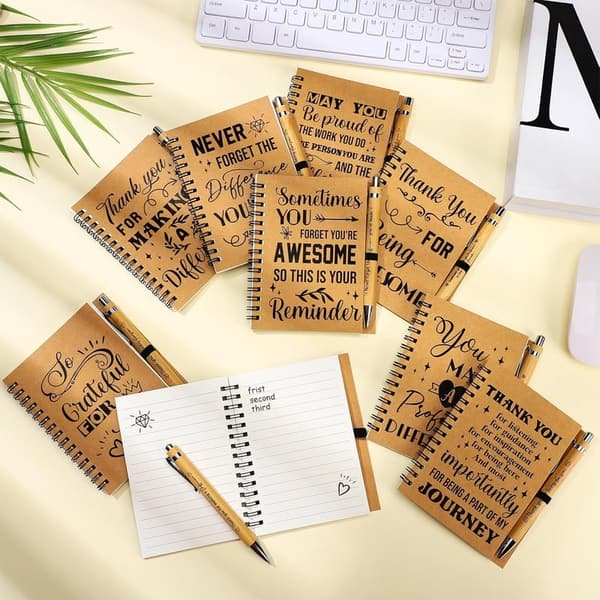 N
MAY YOU
Be proud of
THE WORK YOU DO
PERSON YOU ARE
AND THE
NEVER
FORGET THE
Difference
YOU
Thank you
FOR
MAKING
A
Diffe
Sometimes
YOU
FORGET YOU'RE
AWESOME
SO THIS IS YOUR
Reminder
Thank You
FOR
Being
SOME
So
Grateful
FOR
frist
second
third
You
MA
A
Prof
DIFFE
THANK YOU
for listening
for guidance
for inspiration
for encouragement
for being here
And most
importantly
FOR BEING A PART OF MY
JOURNEY